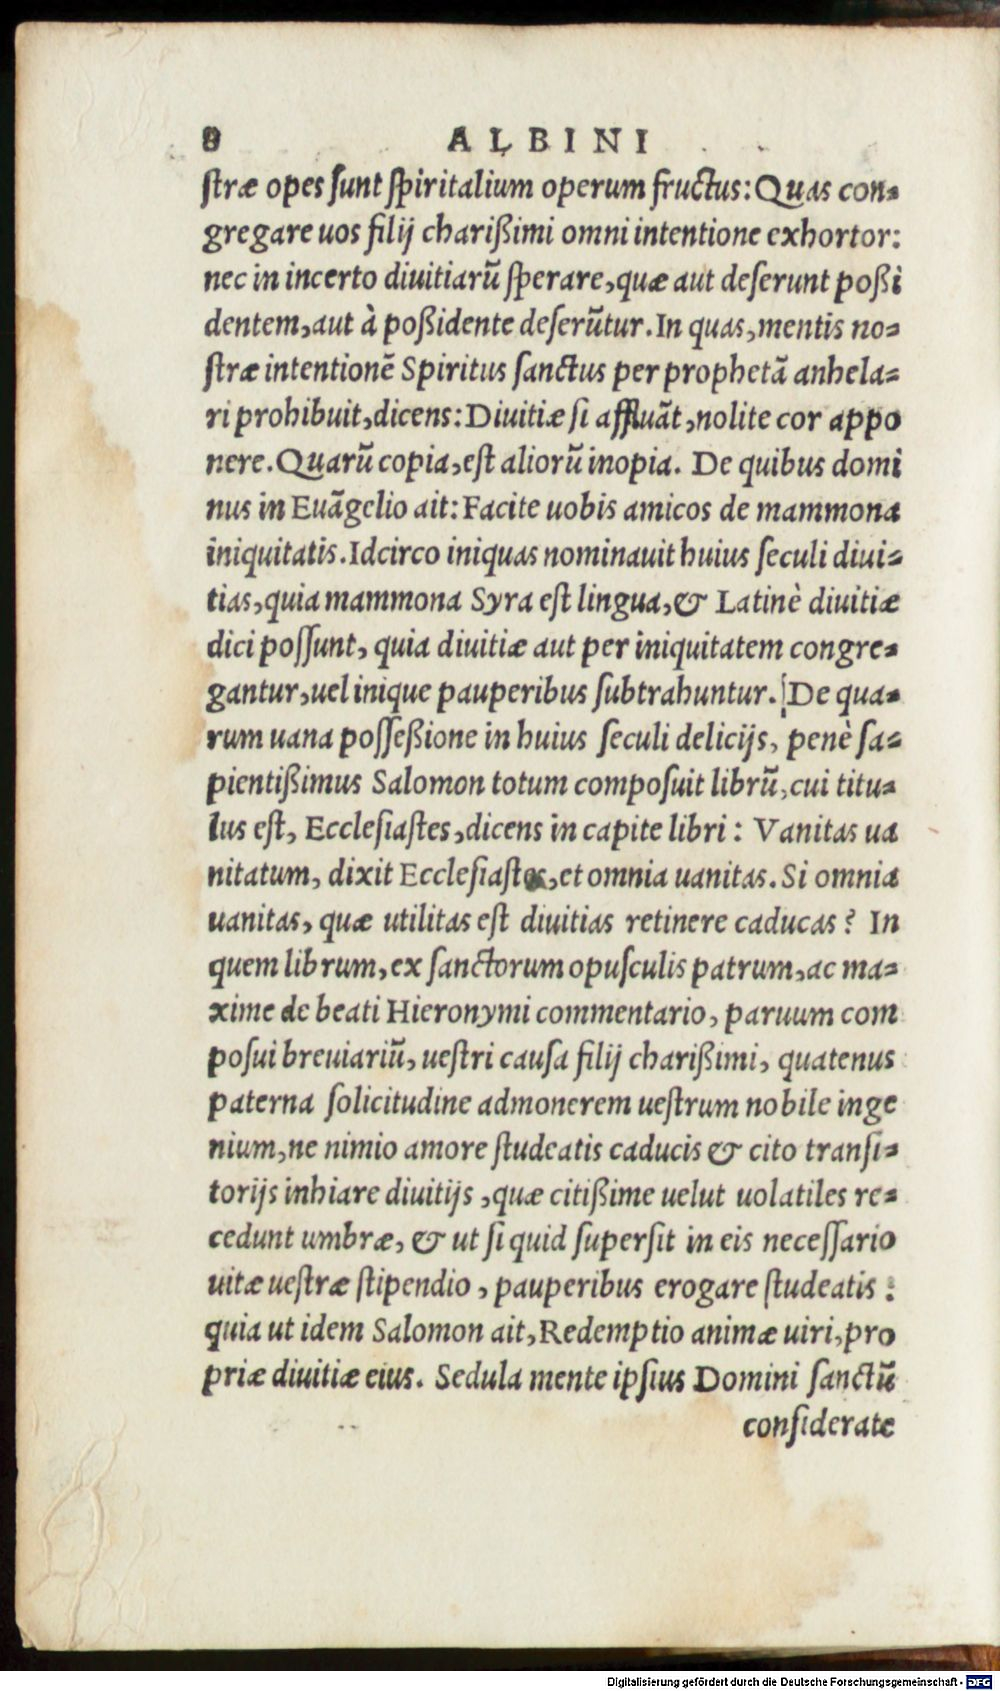 8 ALBINI
ſtræ opes ſunt ſpiritalium operum fructus: Quas con-
gregare uos filij charißimi omni intentione exhortor:
nec in incerto diuitiarū ſperare, quæ aut deſerunt poßi
dentem, aut à poßidente deſerūtur. In quas, mentis no-
ſtræ intentionē Spiritus ſanctus per prophetā anhela-
ri prohibuit, dicens: Diuitiæ ſi affluāt, nolite cor appo
nere. Quarū copia, eſt aliorū inopia. De quibus domi
nus in Euāgelio ait: Facite uobis amicos de mammona
iniquitatis. Idcirco iniquas nominauit huius ſeculi diui-
tias, quia mammona Syra eſt lingua, & Latinè diuitiæ
dici poſſunt, quia diuitiæ aut per iniquitatem congre-
gantur, uel inique pauperibus ſubtrahuntur. De qua-
rum uana poſſeßione in huius ſeculi delicijs, penè ſa-
pientißimus Salomon totum compoſuit librū, cui titu-
lus eſt, Eccleſiaſtes, dicens in capite libri: Vanitas ua
nitatum, dixit Eccleſiaſtes, et omnia uanitas. Si omnia
uanitas, quæ utilitas eſt diuitias retinere caducas? In
quem librum, ex ſanctorum opuſculis patrum, ac ma-
xime de beati Hieronymi commentario, paruum com
poſui breuiariū, ueſtri cauſa filij charißimi, quatenus
paterna ſolicitudine admonerem ueſtrum nobile inge
nium, ne nimio amore ſtudeatis caducis & cito tranſi-
torijs inhiare diuitijs, quæ citißime uelut uolatiles re-
cedunt umbræ, & ut ſi quid ſuperſit in eis neceſſario
uitæ ueſtræ ſtipendio, pauperibus erogare ſtudeatis:
quia ut idem Salomon ait, Redemptio animæ uiri, pro
priæ diuitiæ eius. Sedula mente ipſius Domini ſanctū
conſiderate
Digitalisierung gefördert durch die Deutsche Forschungsgemeinschaft - DFG